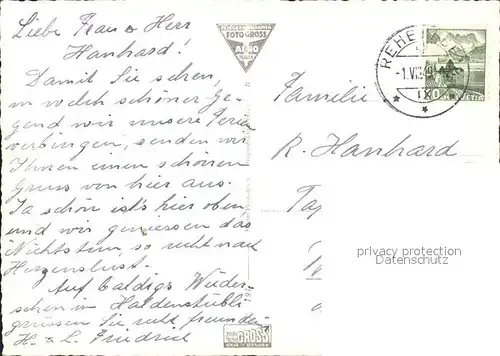 Liebe Frau & Herr
Hanhard!
Damit Sie sehen,
in welch schöner Ge-
gend wir unsere Ferien
verbingen, senden wir
Ihnen einen schönen
Gruss von hier aus.
Ja schön ist's hier oben
und wir geniessen das
Nichtstun, so recht nach
Herzenslust.
Auf baldigs Wieder-
sehen im Haldenstübli
grüssen Sie recht freundl.
H. & L. Friedrich
FOTO GROSS
GROSS
REHE
-1.VII
HELVETIA
Familie
R. Hanhard
Ta
privacy protection
Datenschutz